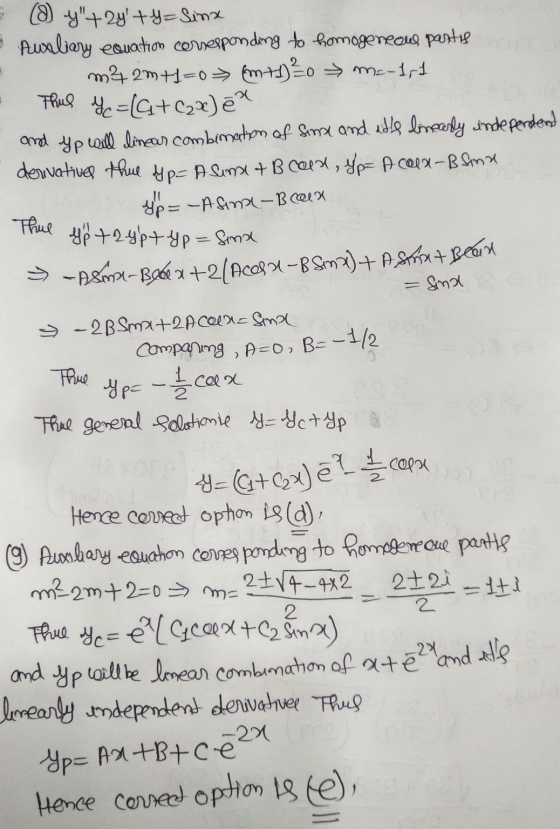 (8) y″ + 2y′ + y = Sinx
Auxiliary equation corresponding to homogeneous part is
m² + 2m + 1 = 0 ⇒ (m+1)² = 0 ⇒ m = -1, -1
Thus y_c = (C₁ + C₂x) e⁻ˣ
and y_p will linear combination of Sinx and it's linearly independent
derivatives thus y_p = A Sinx + B cosx, y′_p = A cosx - B Sinx
y″_p = -A Sinx - B cosx
Thus y″_p + 2y′_p + y_p = Sinx
⇒ -A Sinx - B cosx + 2(A cosx - B Sinx) + A Sinx + B cosx
= Sinx
⇒ -2B Sinx + 2A cosx = Sinx
Comparing, A = 0, B = -1/2
Thus y_p = -1/2 cosx
Thus general solution is y = y_c + y_p
y = (C₁ + C₂x) e⁻ˣ - 1/2 cosx
Hence correct option is (d),
(9) Auxiliary equation corresponding to homogeneous part is
m² - 2m + 2 = 0 ⇒ m = (2 ± √(4 - 4×2))/2 = (2 ± 2i)/2 = 1 ± i
Thus y_c = eˣ(C₁ cosx + C₂ Sinx)
and y_p will be linear combination of x + e⁻²ˣ and it's
linearly independent derivatives Thus
y_p = Ax + B + C e⁻²ˣ
Hence correct option is (e),